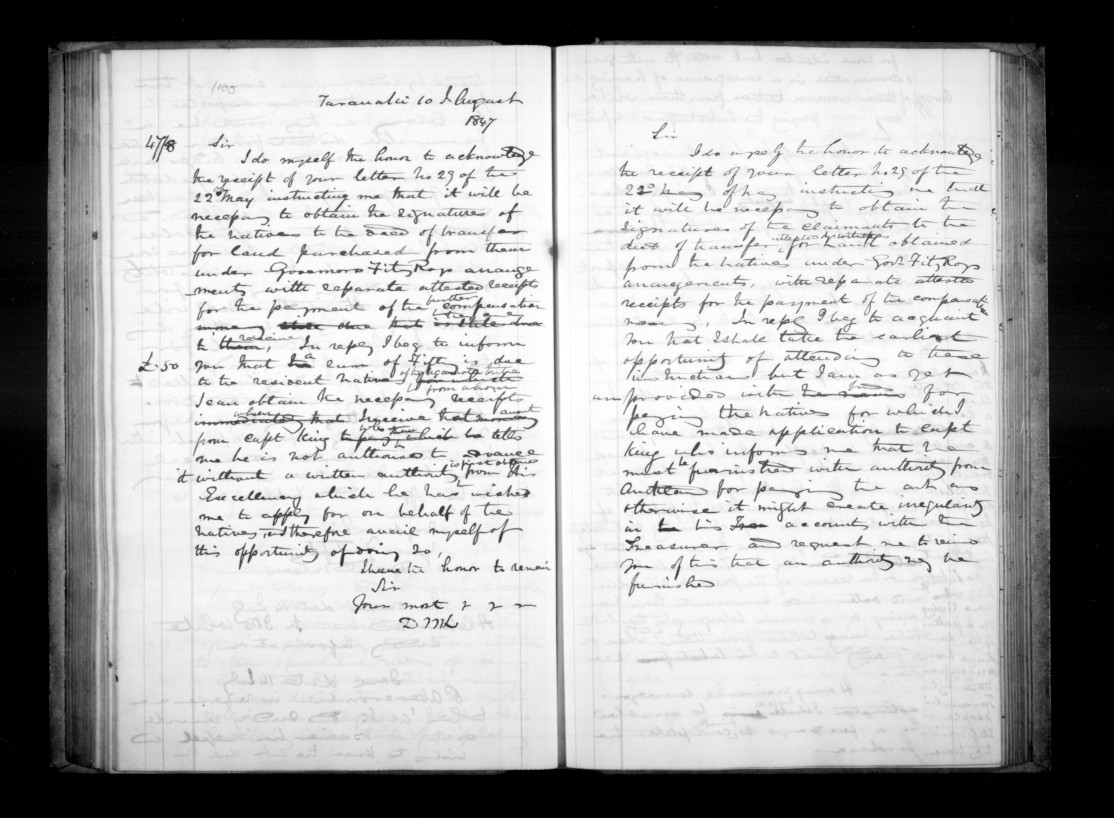 1105
Taranaki 10th August
1847
47/8
Sir
I do myself the honor to acknowledge
the receipt of your letter No 29 of the
22nd May instructing me that it will be
necessary to obtain the signatures of
the natives to the deed of transfer
for land purchased from them
under Governors Fitz Roys arrange
ments with separate attested receipts
for the payment of the further compensation
money
to receive, In reply I beg to inform
£50 you that a sum of Fifty is due
to the resident natives of
from whom
I can obtain the necessary receipts
immediately when that I receive that amount
from Capt King which he tells
me he is not authorised to advance
it without a written authority is first obtained from His
Excellency which he has wished
me to apply for on behalf of the
natives, & I therefore avail myself of
this opportunity of doing so,
I have the honor to remain
Sir
Your most
D McL
Sir
I do myself the honor to acknowledge
the receipt of your letter No 29 of the
22nd May instructing me that
it will be necessary to obtain the
signatures of the claimants to the
deed of transfer for land obtained
from the natives under Govr Fitz Roys
arrangements, with separate attested
receipts for the payment of the compensation
money, In reply I beg to acquaint
you that I shall take the earliest
opportunity of attending to these
instructions but I am as yet
unprovided with for
paying the natives for which I
have made application to Capt
King who informs me that he
must be furnished with authority from
Auckland for paying the cash as
otherwise it might create irregularity
in his accounts with the
Treasurer and request me to remind
you of this that an authority may be
furnished